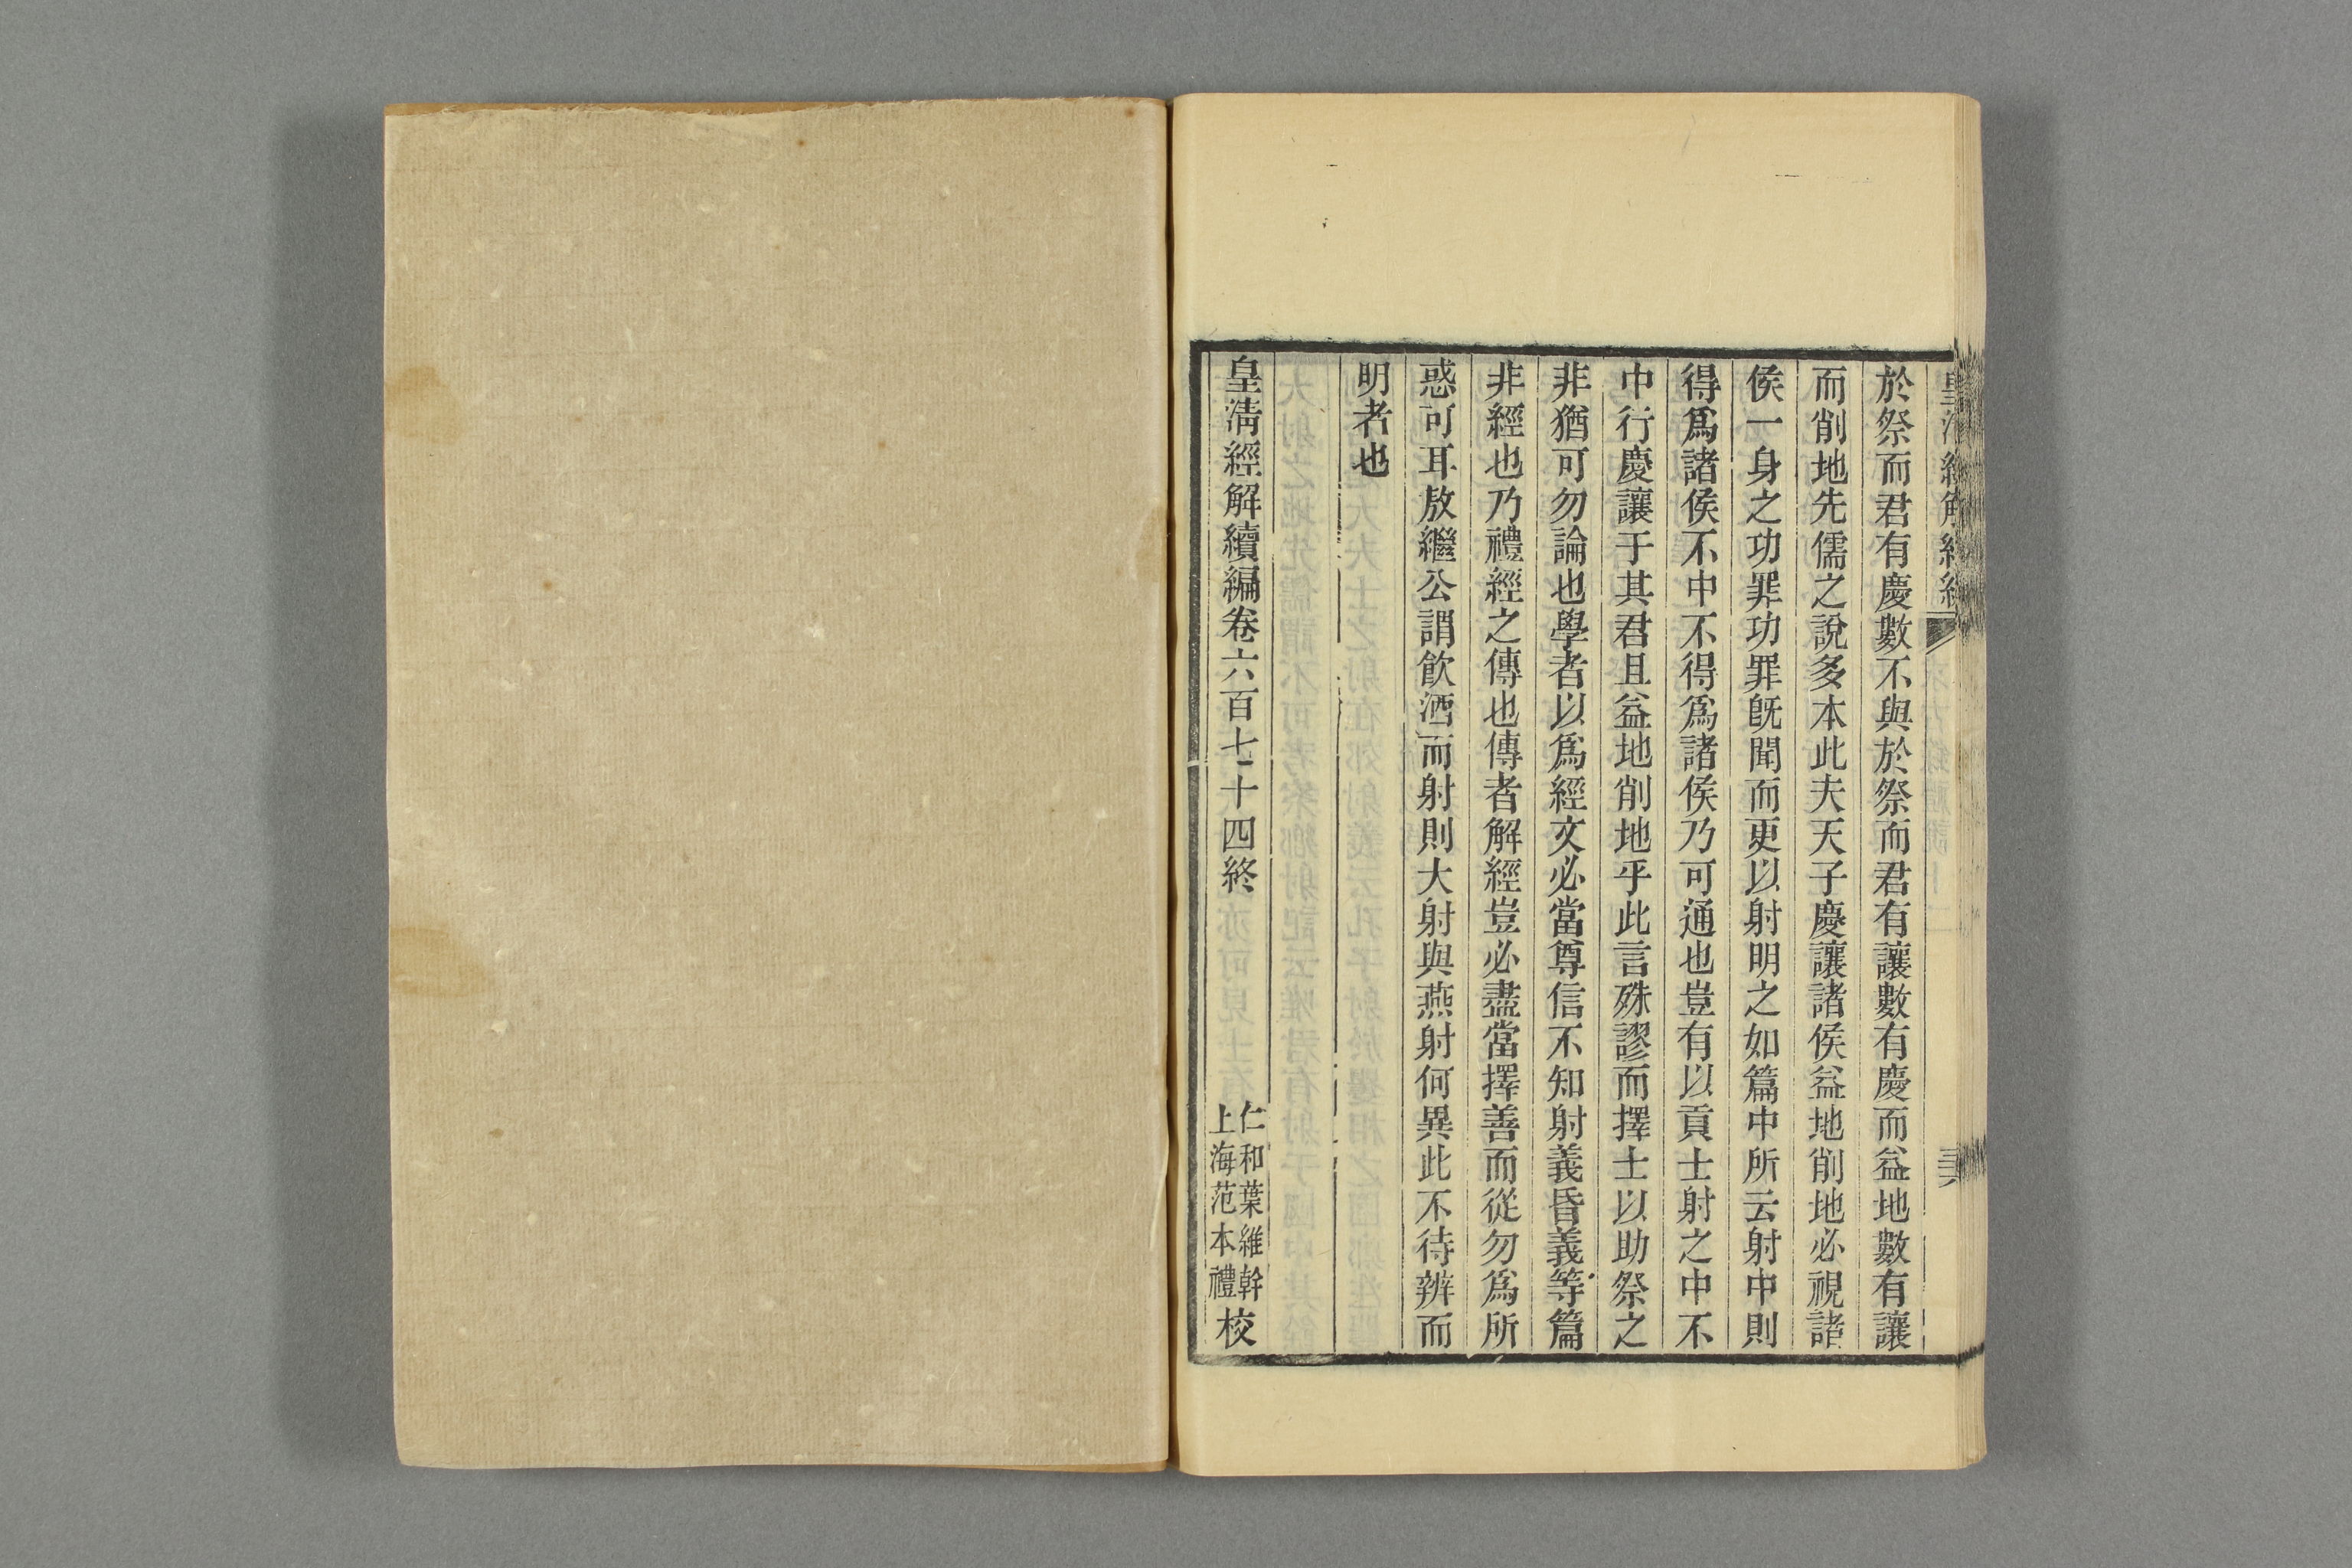 皇清經解續編
於祭而君有慶數不與於祭而君有讓數有慶而益地數有讓
而削地先儒之說多本此夫天子慶讓諸侯益地削地必視諸
侯一身之功罪功罪旣聞而更以射明之如篇中所云射中則
得爲諸侯不中不得爲諸侯乃可通也豈有以貢士射之中不
中行慶讓于其君且益地削地乎此言殊謬而擇士以助祭之
非猶可勿論也學者以爲經文必當尊信不知射義昏義等篇
非經也乃禮經之傳也傳者解經豈必盡當擇善而從勿爲所
惑可耳敖繼公謂飮酒而射則大射與燕射何異此不待辨而
明者也
皇淸經解續編卷六百七十四終
仁和葉維幹
上海范本禮
校